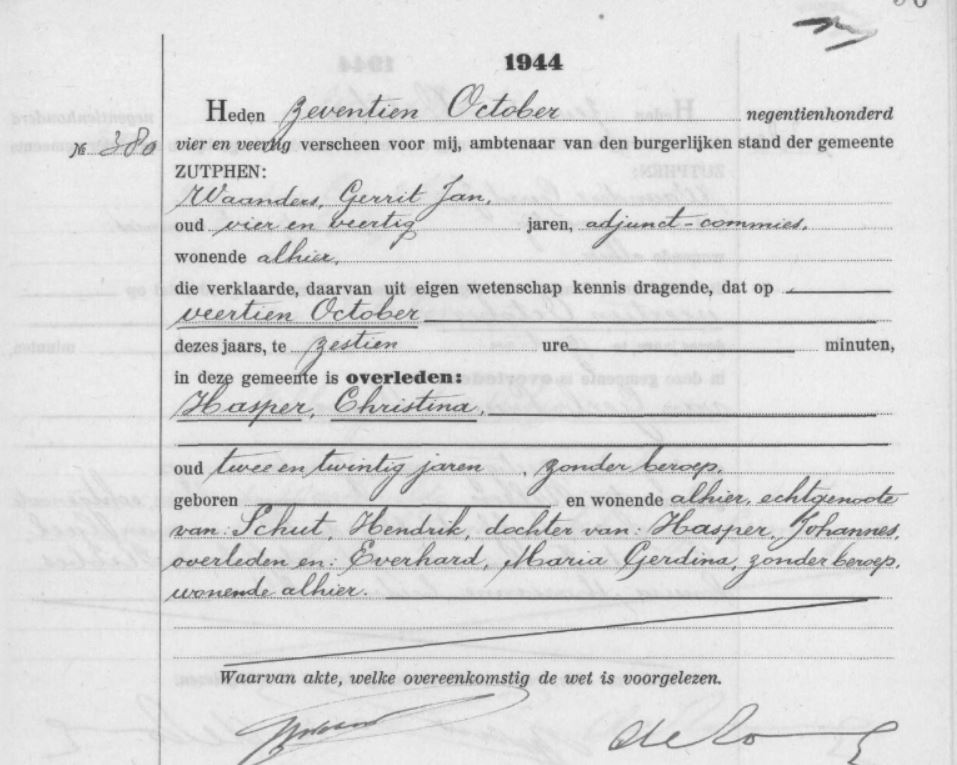 1944
Heden zeventien October negentienhonderd
№ 380 vier en veertig verscheen voor mij, ambtenaar van den burgerlijken stand der gemeente
ZUTPHEN:
Waanders, Gerrit Jan,
oud vier en veertig jaren, adjunct-commies,
wonende alhier,
die verklaarde, daarvan uit eigen wetenschap kennis dragende, dat op
veertien October
dezes jaars, te zestien ure minuten,
in deze gemeente is overleden:
Hasper, Christina,
oud twee en twintig jaren, zonder beroep,
geboren en wonende alhier, echtgenoote
van: Schut, Hendrik, dochter van: Hasper, Johannes,
overleden en: Everhard, Maria Gerdina, zonder beroep,
wonende alhier.
Waarvan akte, welke overeenkomstig de wet is voorgelezen.